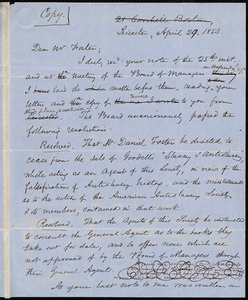 (Copy)
21 Cornhill, Boston
Leicester, April 29, 1853
Dear Mr Foster;
I duly rec'd your note of the 25th inst.
and at the meeting of the Board of Managers
I laid the note before them, reading your
letter and the copy of mine to you from
Leicester. The Board unanimously passed the
following resolutions.
Resolved, That Mr. Daniel Foster be directed to
cease from the sale of Goodell's "Slavery & Antislavery",
while acting as an Agent of this Society, in view of the
falsification of Antislavery history, and the misstatements
as to the action of the American Antislavery Society,
& its members, contained in that work.
Resolved, That the Agents of this Society be instructed
to consult the General Agent as to the books they
take out for sale, and to offer none which are
not approved of by the Board of Managers through
their General Agent.
As your last note to me was written